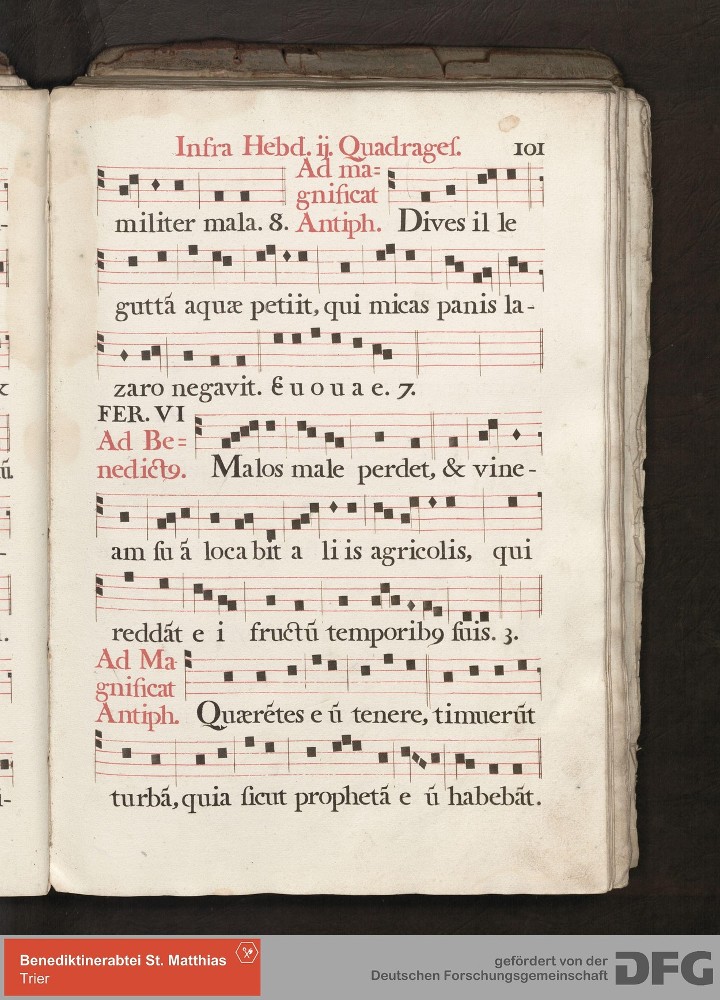 Infra Hebd. ij. Quadrages. 101
Ad ma=
gnificat
militer mala. 8. Antiph. Dives il le
guttã aquæ petiit, qui micas panis la-
zaro negavit. E u o u a e. 7.
FER. VI
Ad Be=
nedictꝯ. Malos male perdet, & vine-
am su ã loca bit a li is agricolis, qui
reddãt e i fructũ temporibꝯ suis. 3.
Ad Ma-
gnificat
Antiph. Quærẽtes e ũ tenere, timuerũt
turbã, quia sicut prophetã e ũ habebãt.
Benediktinerabtei St. Matthias
Trier
gefördert von der
Deutschen Forschungsgemeinschaft DFG